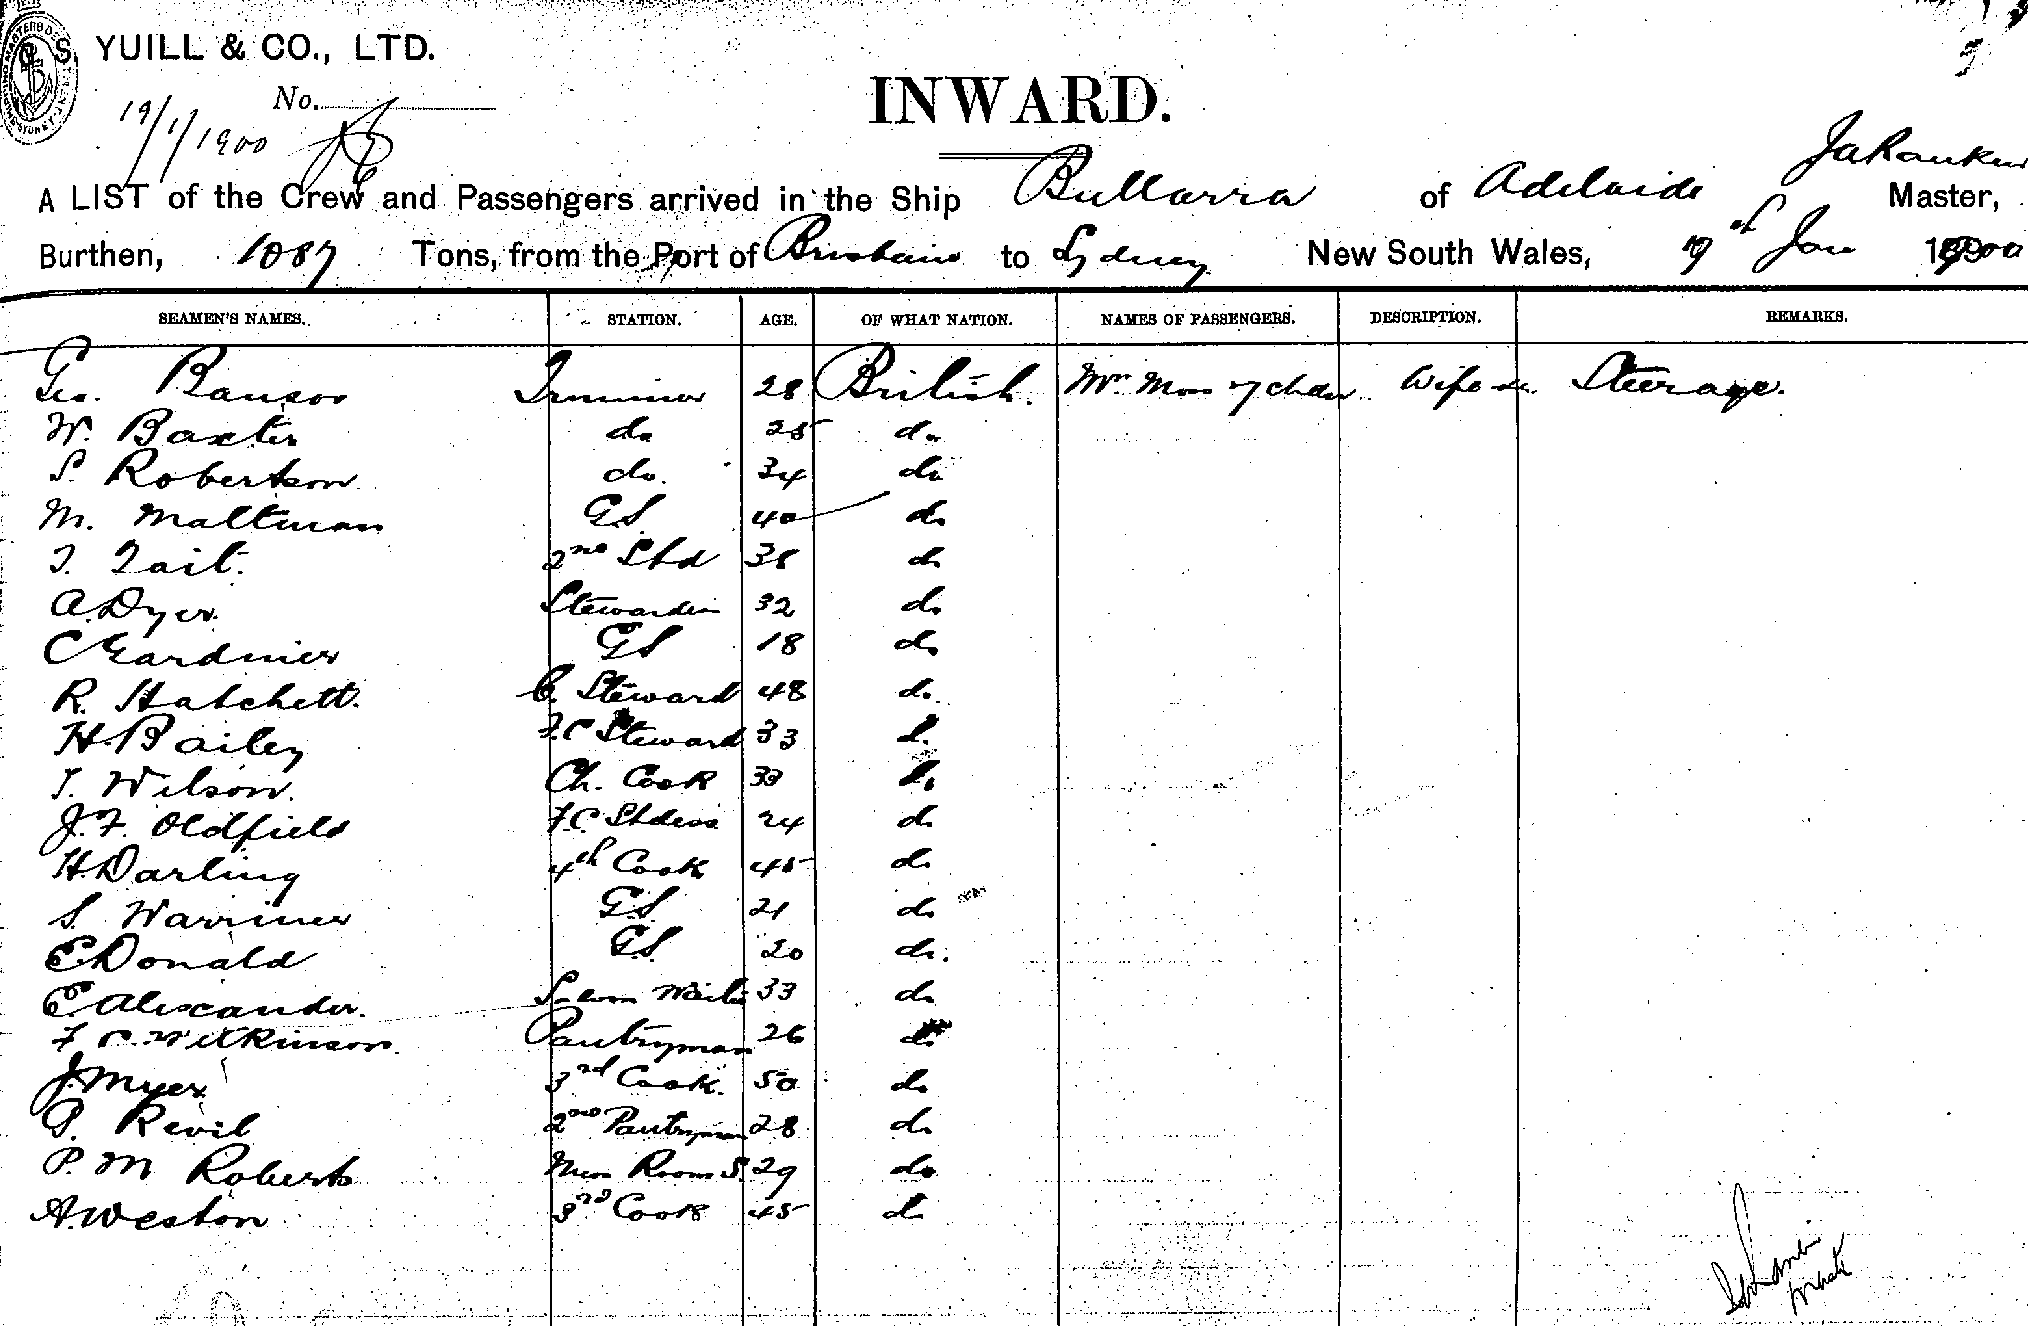 G. S. YUILL & CO., LTD.
No.
19/1/1900
INWARD.
A LIST of the Crew and Passengers arrived in the Ship Bullarra of Adelaide Master,
Burthen, 1087 Tons, from the Port of Brisbane to Sydney New South Wales, 19 of Jan 1900
SEAMEN'S NAMES. STATION. AGE. OF WHAT NATION. NAMES OF PASSENGERS. DESCRIPTION. REMARKS.
Geo. Trimmer 28 British. Wife Steerage.
W. Baxter do 25 do
S. Robertson do. 34 do
M. Maltman G.S. 40 do
T. Tait. 2nd Std 38 do
A. Dyer Stewardess 32 do
C Gardiner GS 18 do
R. Hatchett. C. Steward 48 do
H. Bailey F.C Steward 33 do
T. Wilson. Ch. Cook 33 do
J. F. Oldfield F.C. Stdess 24 do
H. Darling 4th Cook 45 do
S. Warriner G.S. 21 do
E. Donald G.S. 20 do.
E. Alexander. Saloon Waiter 33 do
F C. Wilkinson. Pantryman 26 do
J. Myer 3rd Cook. 50 do
P. Revil 2nd Pantryman 28 do
P. M Roberts Mess Room S. 29 do
A. Weston 3rd Cook 45 do